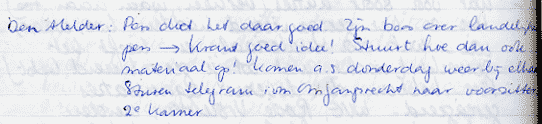 Den Helder: Pon doet het daar goed. Zijn boos over landelijke
pers → Krant goed idee! Stuurt hoe dan ook
materiaal op! Komen a.s. donderdag weer bij elkaar
Sturen telegram i.v.m. Omgangsrecht naar voorzitter
2e Kamer